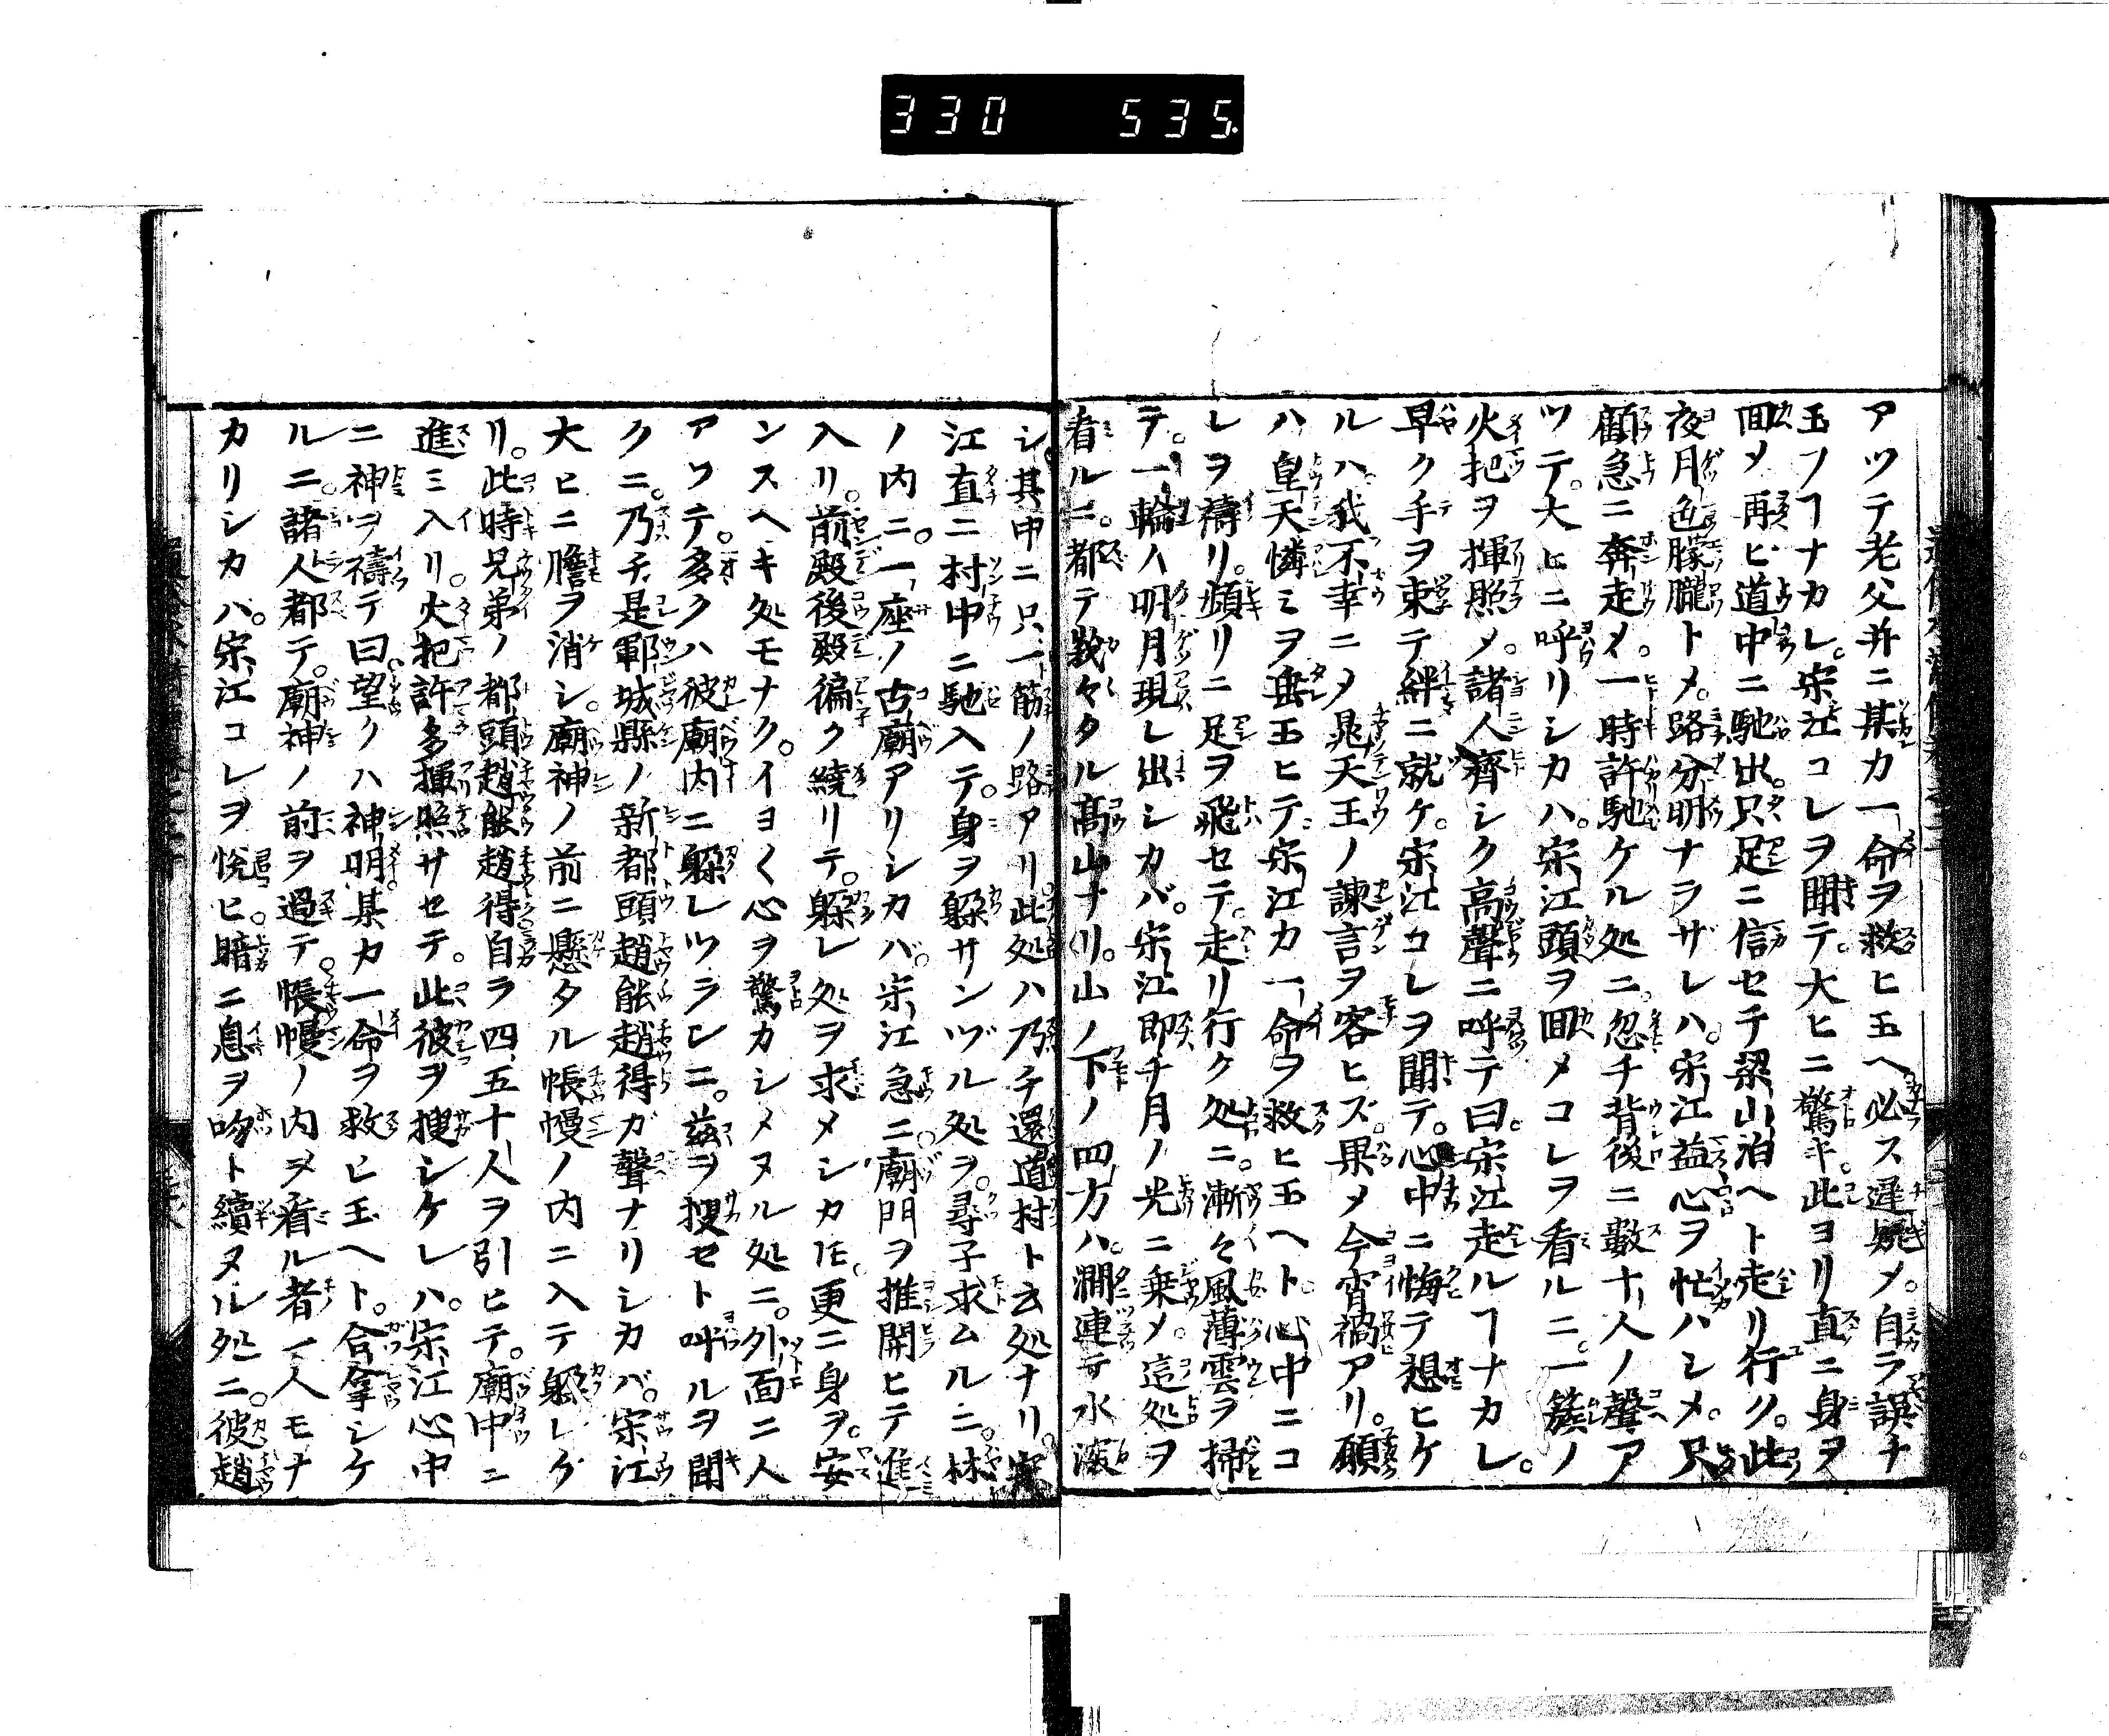 330 535.
アツテ老父并ニ某カ一命ヲ救ヒ玉ヘ必ス遲疑メ自ラ誤チ
玉フヿナカレ宋江コレヲ聞テ大ヒニ驚キ此ヨリ直ニ身ヲ
囬メ再ヒ道中ニ馳出只足ニ信セテ梁山泊ヘト走リ行ク此
夜月色朦朧トメ路分明ナラザレハ宋江益心ヲ忙ハシメ只
顧急ニ奔走メ一時許馳ケル処ニ忽チ背後ニ數十人ノ聲ア
ツテ大ヒニ呼リシカハ宋江頭ヲ囬メコレヲ看ルニ一簇ノ
火把ヲ揮照メ諸人齊シク高聲ニ呼テ曰宋江走ルヿナカレ
早ク手ヲ束テ絆ニ就ケ宋江コレヲ聞テ心中ニ悔テ想ヒケ
ルハ我不幸ニメ晁天王ノ諫言ヲ容ヒズ果メ今宵禍アリ願
ハ皇天憐ミヲ垂玉ヒテ宋江カ一命ヲ救ヒ玉ヘト心中ニコ
レヲ禱リ頻リニ足ヲ飛セテ走リ行ク処ニ漸々風薄雲ヲ掃
テ一輪ノ明月現レ出シカバ宋江即チ月ノ光ニ乗メ這処ヲ
看ルニ都テ巍々タル高山ナリ山ノ下ノ四方ハ澗連テ水滾
シ其中ニ只一筋ノ路アリ此処ハ乃チ還道村ト云処ナリ宋
江直ニ村中ニ馳入テ身ヲ躱サンヅル処ヲ尋子求ムルニ林
ノ内ニ一座ノ古廟アリシカバ宋江急ニ廟門ヲ推開ヒテ進
入リ前殿後殿徧ク繞リテ躱レ処ヲ求メシカ𪜈更ニ身ヲ安
ンスヘキ処モナクイヨく心ヲ驚カシメヌル処ニ外面ニ人
アツテ多クハ彼廟内ニ躱レツランニ茲ヲ搜セト呌ルヲ聞
クニ乃チ是鄆城縣ノ新都頭趙能趙得ガ聲ナリシカバ宋江
大ヒニ膽ヲ消シ廟神ノ前ニ懸タル帳幔ノ内ニ入テ躱レケ
リ此時兄弟ノ都頭趙能趙得自ラ四五十人ヲ引ヒテ廟中ニ
進ミ入リ火把許多揮照サセテ此彼ヲ搜シケレハ宋江心中
ニ神ヲ禱テ曰望クハ神明某カ一命ヲ救ヒ玉ヘト合掌シケ
ルニ諸人都テ廟神ノ前ヲ過テ帳幔ノ内ヲ看ル者一人モナ
カリシカバ宋江コレヲ悅ヒ暗ニ息ヲ吻ト續ヌル処ニ彼趙